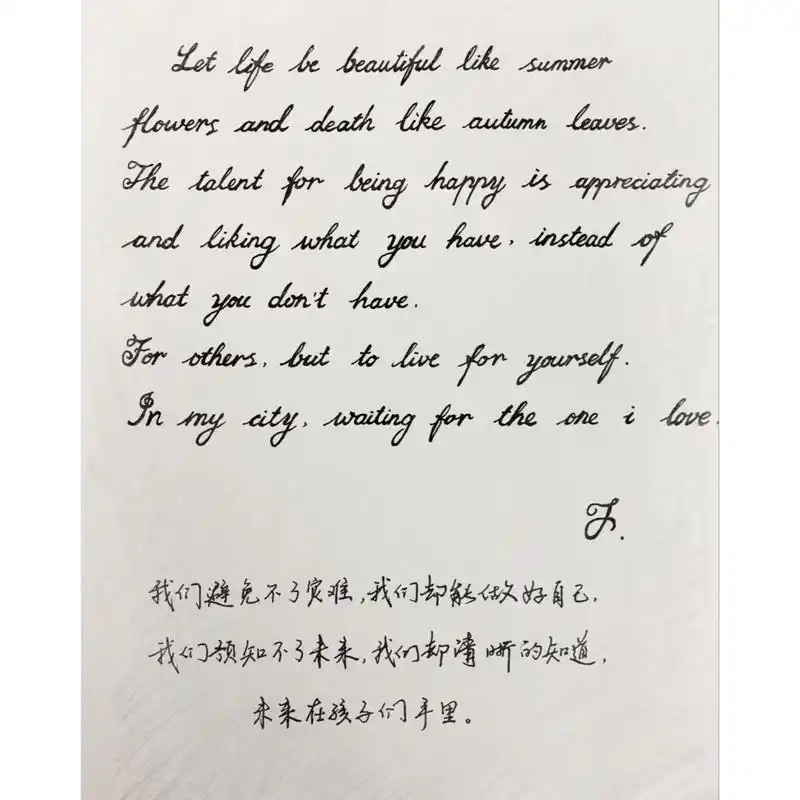 Let life be beautiful like summer
flowers and death like autumn leaves.
The talent for being happy is appreciating
and liking what you have, instead of
what you don't have.
For others, but to live for yourself.
In my city, waiting for the one i love.
F.
我们避免不了灾难,我们却能做好自己.
我们预知不了未来,我们却清晰的知道,
未来在孩子们手里。